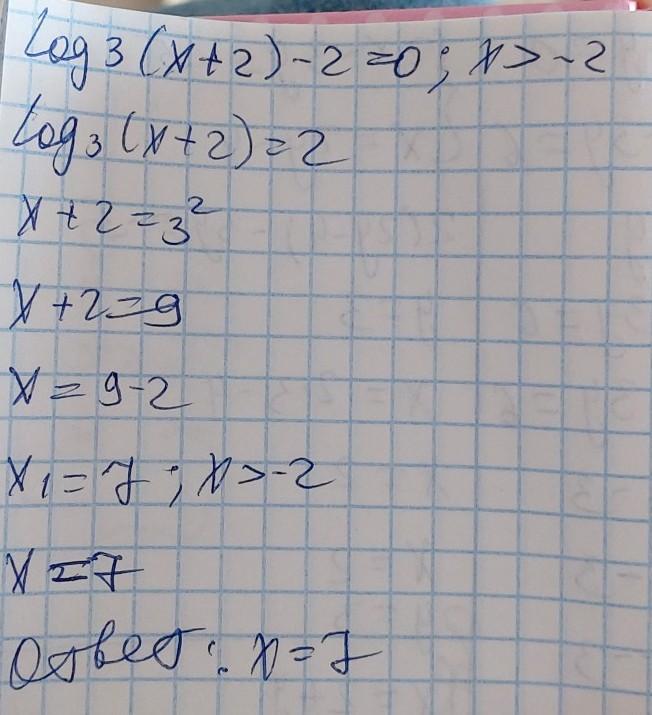 log₃(x+2)-2=0; x>-2
log₃(x+2)=2
x+2=3²
x+2=9
x=9-2
x₁=7; x>-2
x=7
Ответ: x=7